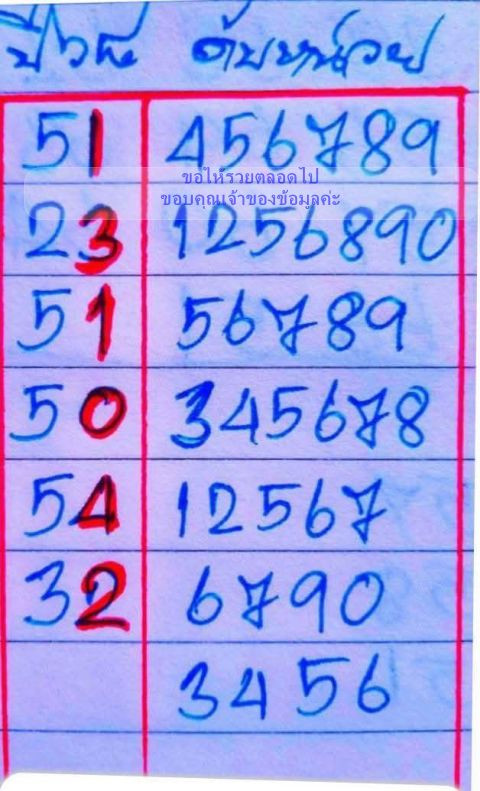 ปีวศ. ดับหน่วย
51 456789
ขอให้รวยตลอดไป
ขอบคุณเจ้าของข้อมูลค่ะ
23 1256890
51 56789
50 345678
54 12567
32 6790
3456